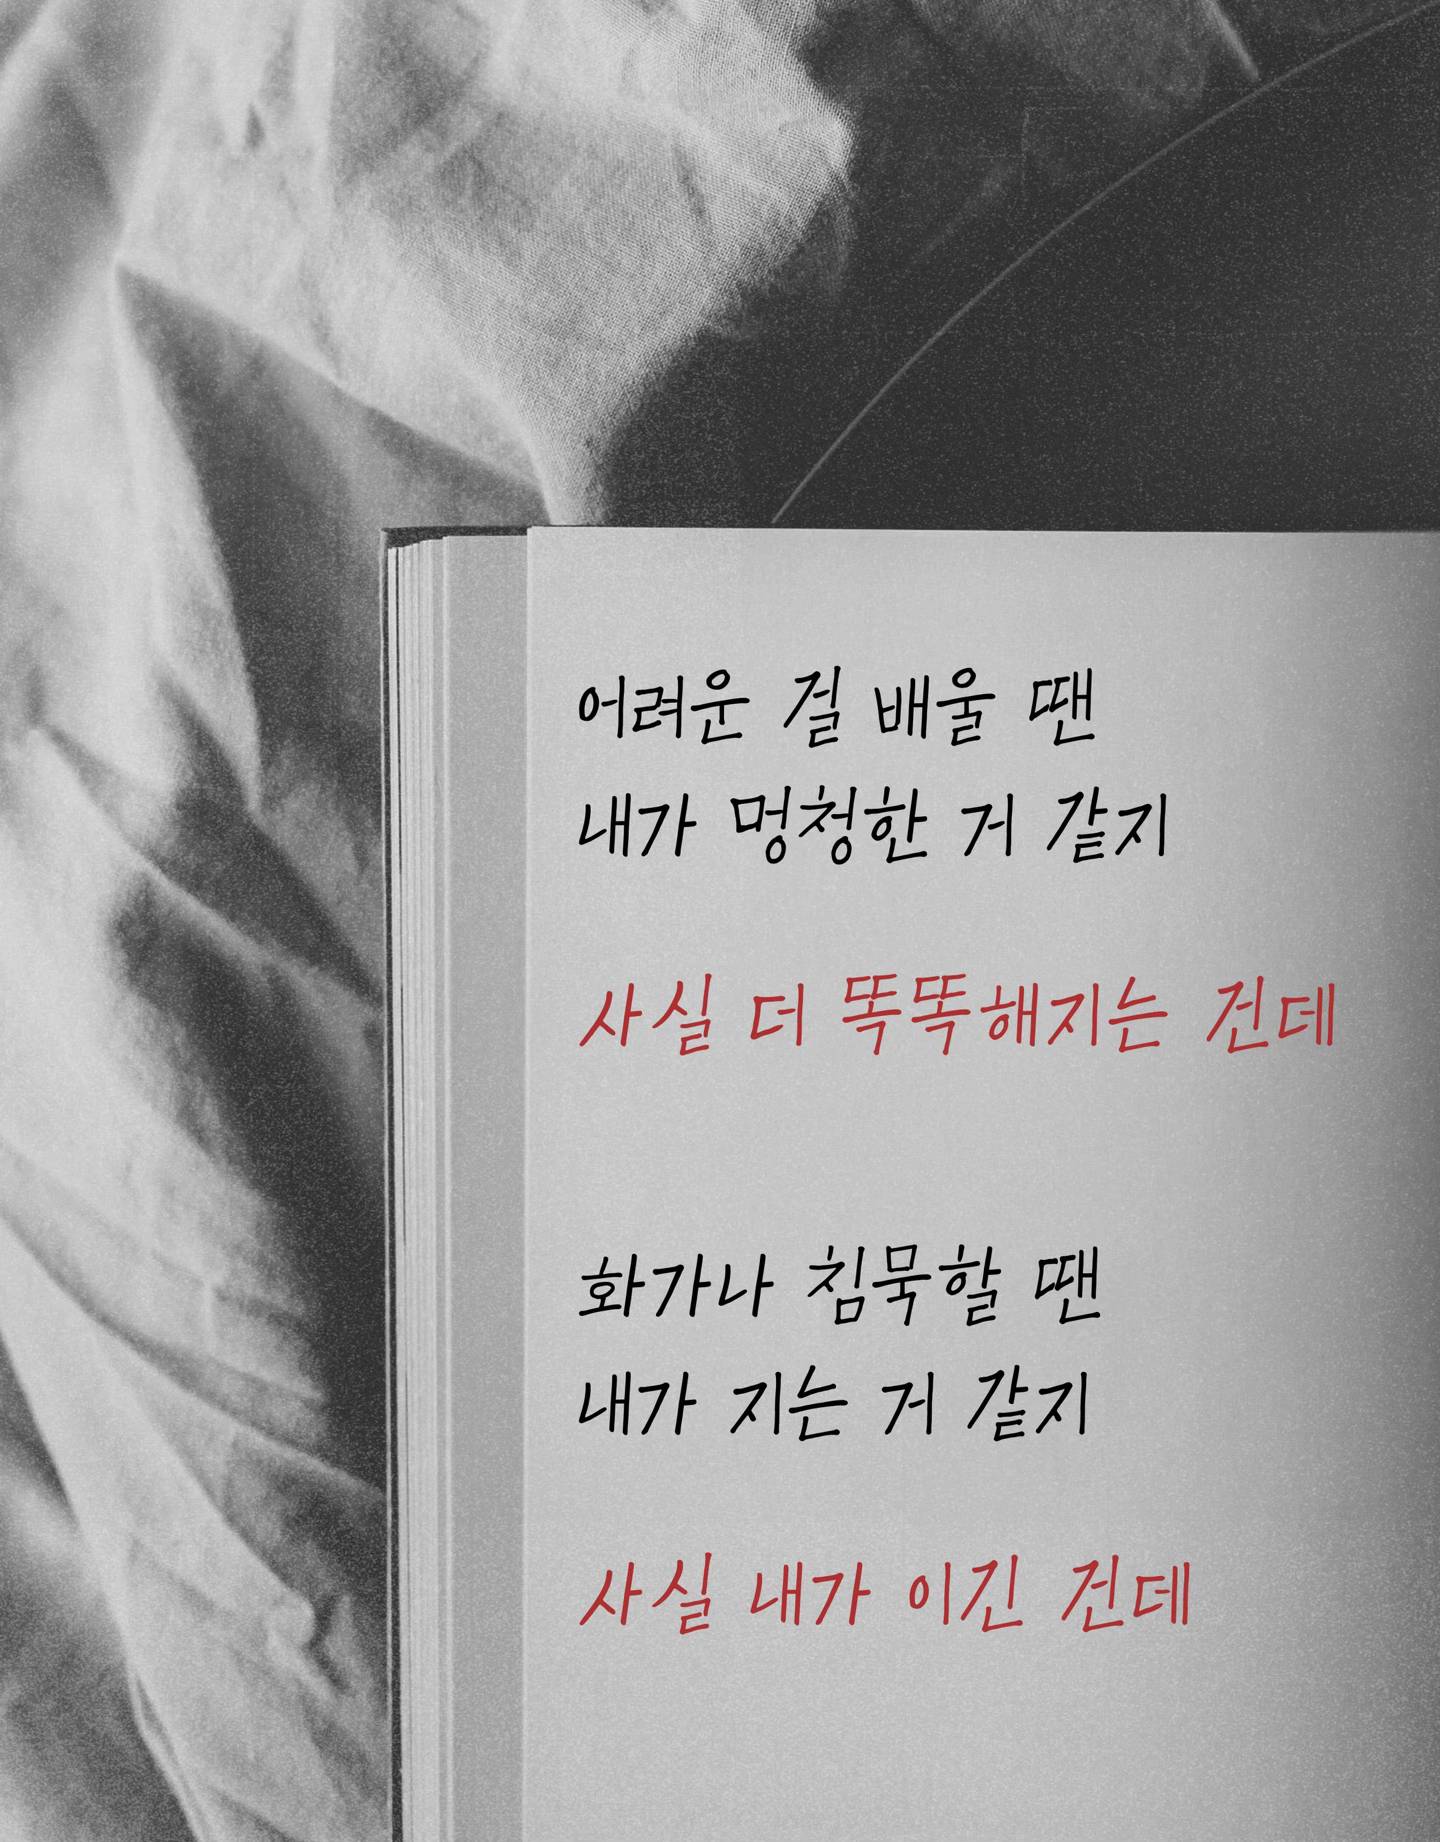 어려운 걸 배울 땐
내가 멍청한 거 같지
사실 더 똑똑해지는 건데
화가나 침묵할 땐
내가 지는 거 같지
사실 내가 이긴 건데